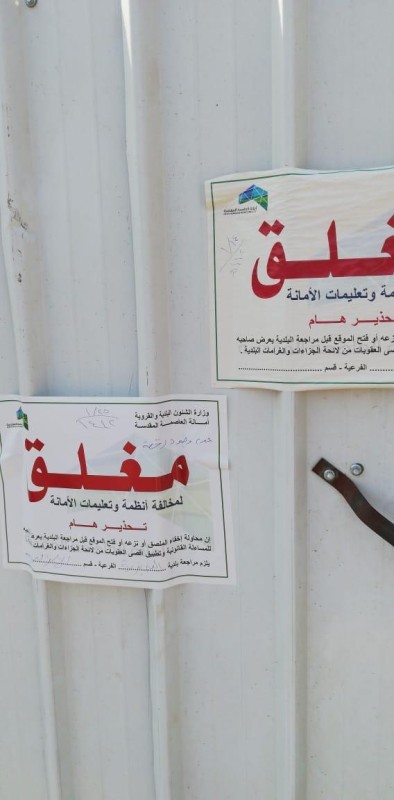 مغلق
ـة وتعليمات الأمانة
تحذير هـام
نزعه أو فتح الموقع قبل مراجعة البلدية يعرض صاحبه
أقصى العقوبات من لائحة الجزاءات والغرامات البلدية .
الفرعية - قسم
وزارة الشئون البلدية والقروية
أمانة العاصمة المقدسة
مغلق
لمخالفة أنظمة وتعليمات الأمانة
تحذير هـام
إن محاولة إخفاء الملصق أو نزعه أو فتح الموقع قبل مراجعة البلدية يعرض
للمساءلة القانونية وتطبيق أقصى العقوبات من لائحة الجزاءات والغرامات
يلزم مراجعة بلدية الفرعية - قسم